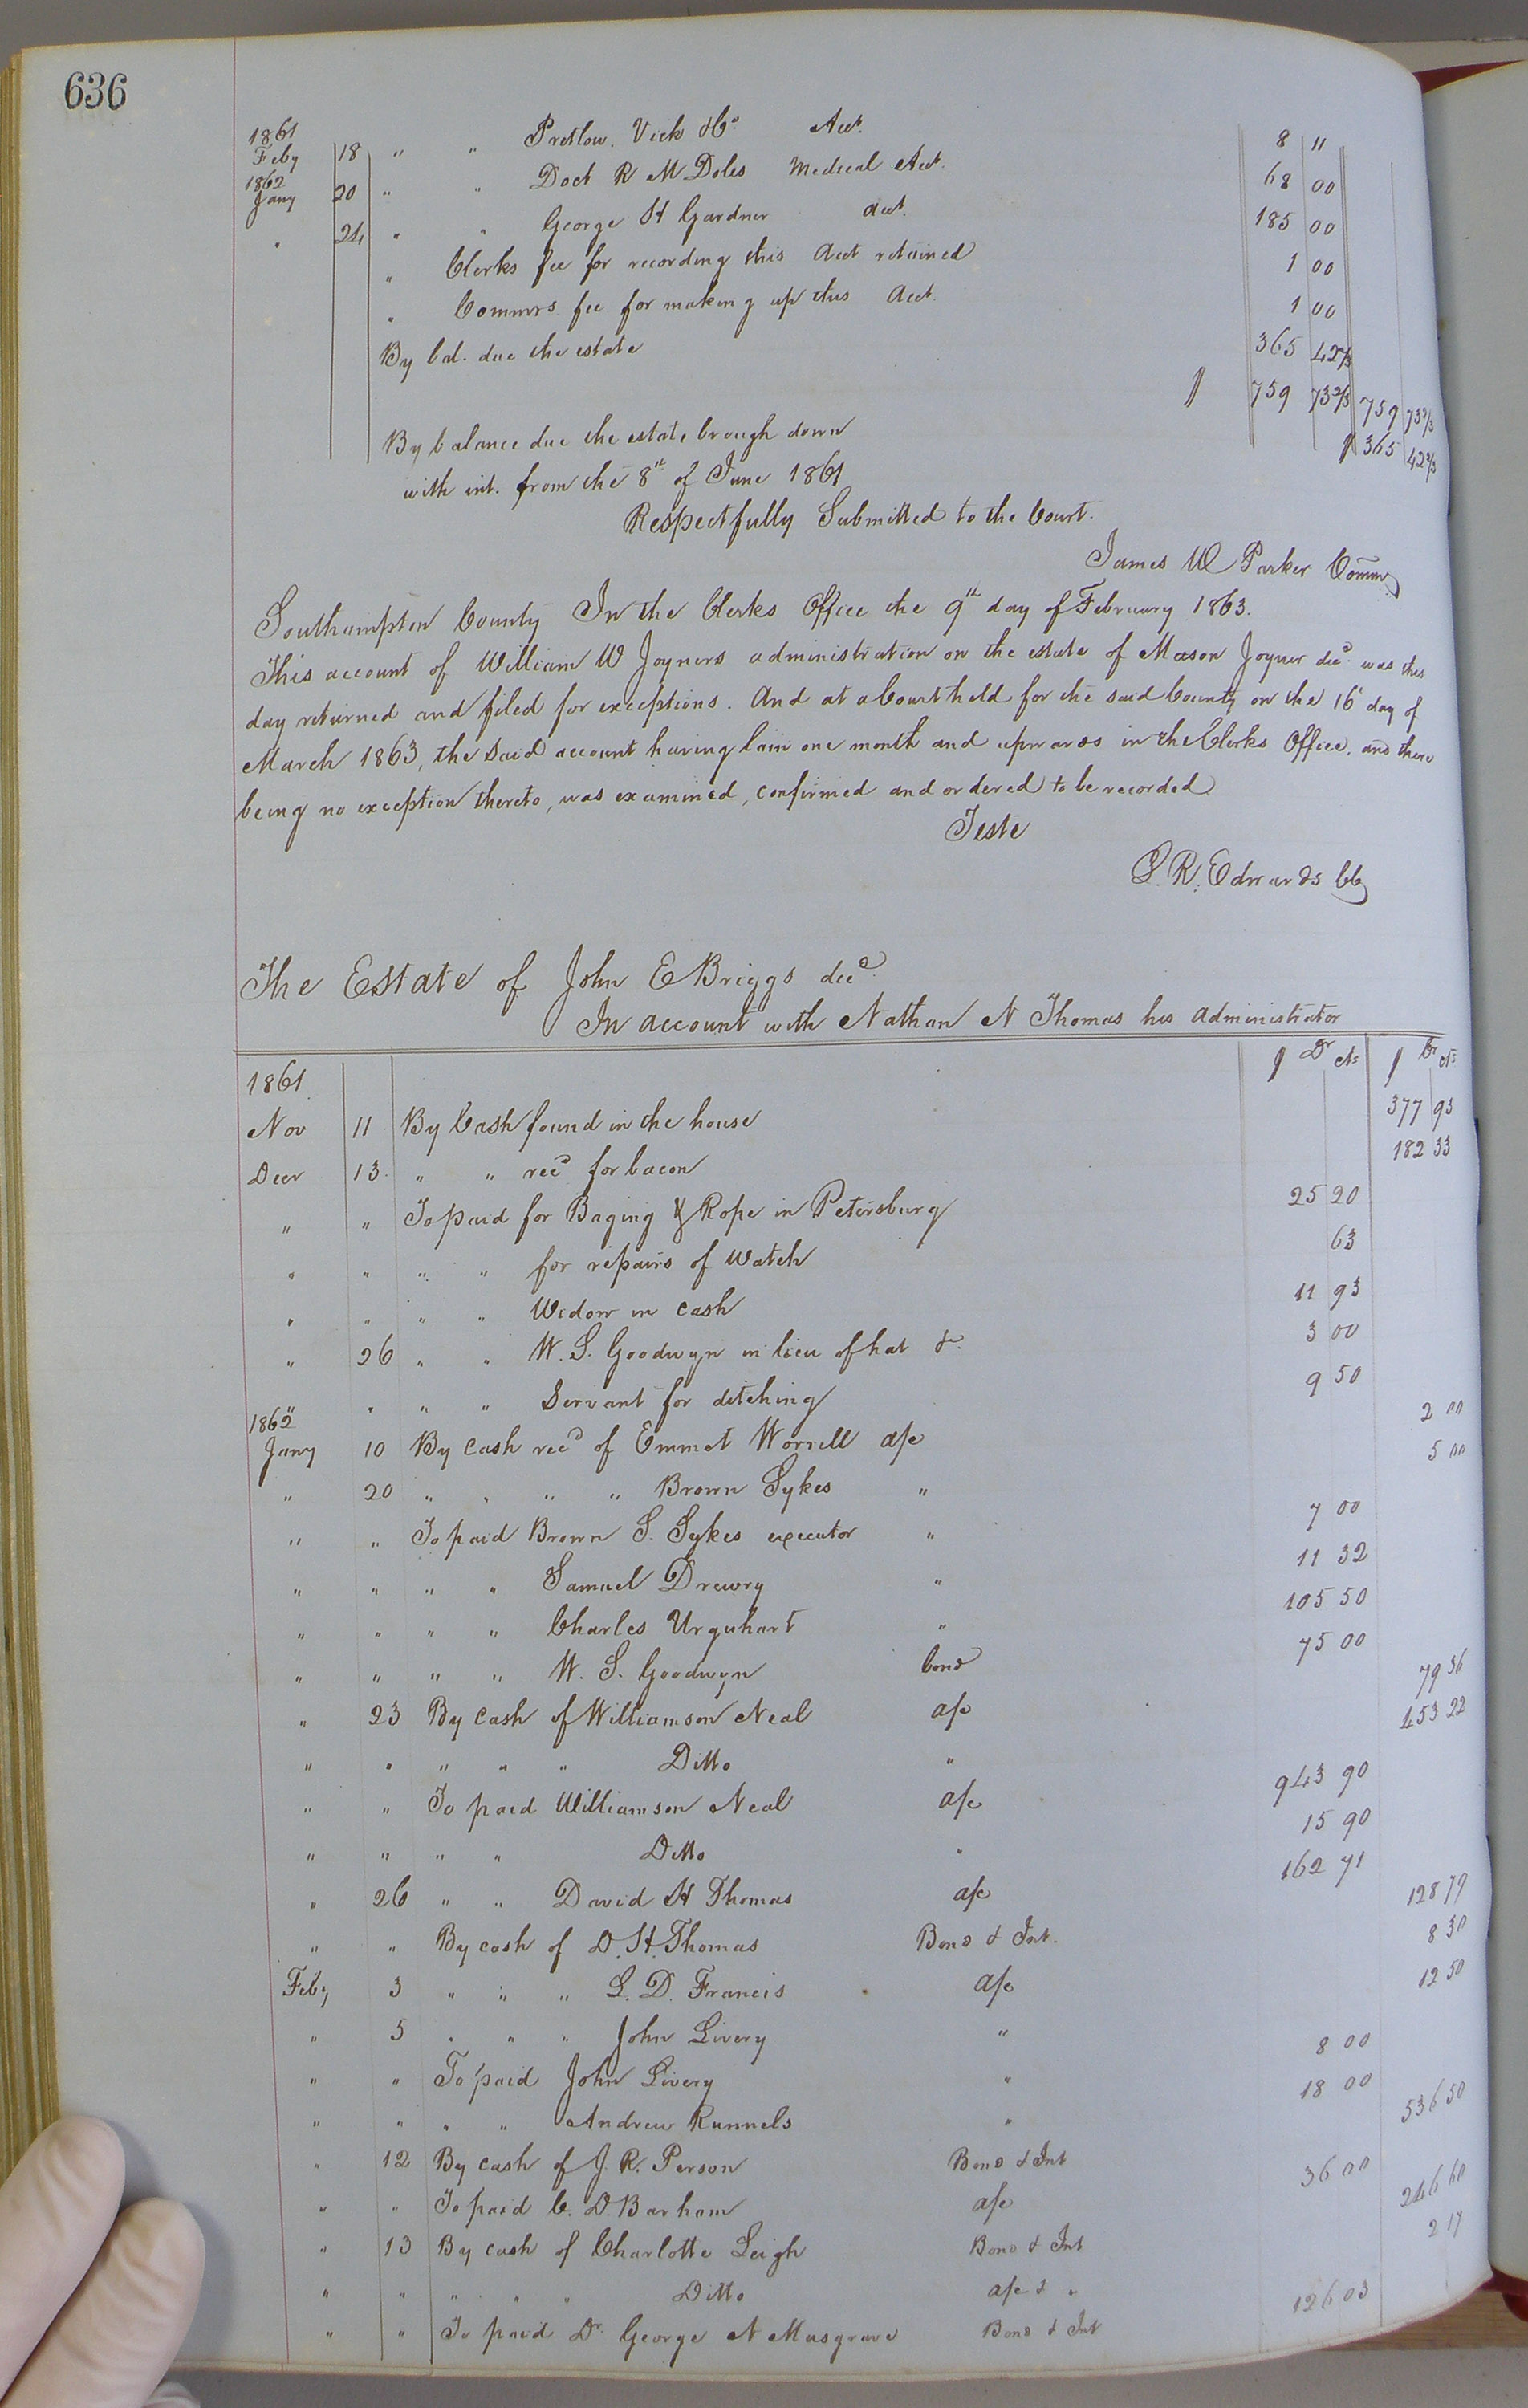 636
1861
Feby 18 " " Pretlow, Vick & Co Act. 8 11
1862
Jany 20 " " Doct R M Doles Medical Act. 68 00
" 24 " " George H Gardner Act. 185 00
" Clerks fee for recording this Acct retained 1 00
" Commrs fee for making up this Acct. 1 00
By bal. due the estate 365 42 2/3
$ 759 73 2/3 759 73 2/3
By balance due the estate brough down $ 365 42 2/3
with int. from the 8th of June 1861
Respectfully Submitted to the Court.
James W Parker Commr
Southampton County In the Clerks Office the 9th day of February 1863.
This account of William W Joyners administration on the estate of Mason Joyner decd. was this
day returned and filed for exceptions. And at a Court held for the said County on the 16th day of
March 1863, the said account having lain one month and upwards in the Clerks Office, and there
being no exception thereto, was examined, confirmed and ordered to be recorded
Teste
L. R. Edwards CC
The Estate of John E Briggs decd.
In account with Nathan N Thomas his administrator
1861 $ Dr cts $ Cr cts
Nov 11 By Cash found in the house 377 93
Decr 13 " " recd for bacon 182 33
" " To paid for Baging & Rope in Petersburg 25 20
" " " " for repairs of Watch 63
" " " " Widow in cash 11 93
" 26 " " W. S. Goodwyn in lieu of hat &c. 3 00
" " " " Servant for ditching 9 50
1862
Jany 10 By cash recd of Emmet Worrell a/c 2 00
" 20 " " " " Brown Sykes " 5 00
" " To paid Brown S. Sykes executor " 7 00
" " " " Samuel Drewry " 11 32
" " " " Charles Urquhart " 105 50
" " " " W. S. Goodwyn bond 75 00
" 23 By cash of Williamson Neal a/c 79 36
" " " " " Ditto " 453 22
" " To paid Williamson Neal a/c 943 90
" " " " Ditto " 15 90
" 26 " " David H Thomas a/c 162 71
" " By cash of D. H. Thomas Bond & Int. 128 79
Feby 3 " " " L. D. Francis a/c 8 30
" 5 " " " John Livery " 12 50
" " To paid John Livery " 8 00
" " " " Andrew Runnels " 18 00
" 12 By cash of J. R. Person Bond & Int 536 50
" " To paid C. D. Barham a/c 36 00
" 13 By cash of Charlotte Leigh Bond & Int 246 60
" " " " " Ditto a/c & " 2 17
" " To paid Dr. George N Musgrave Bond & Int 126 03